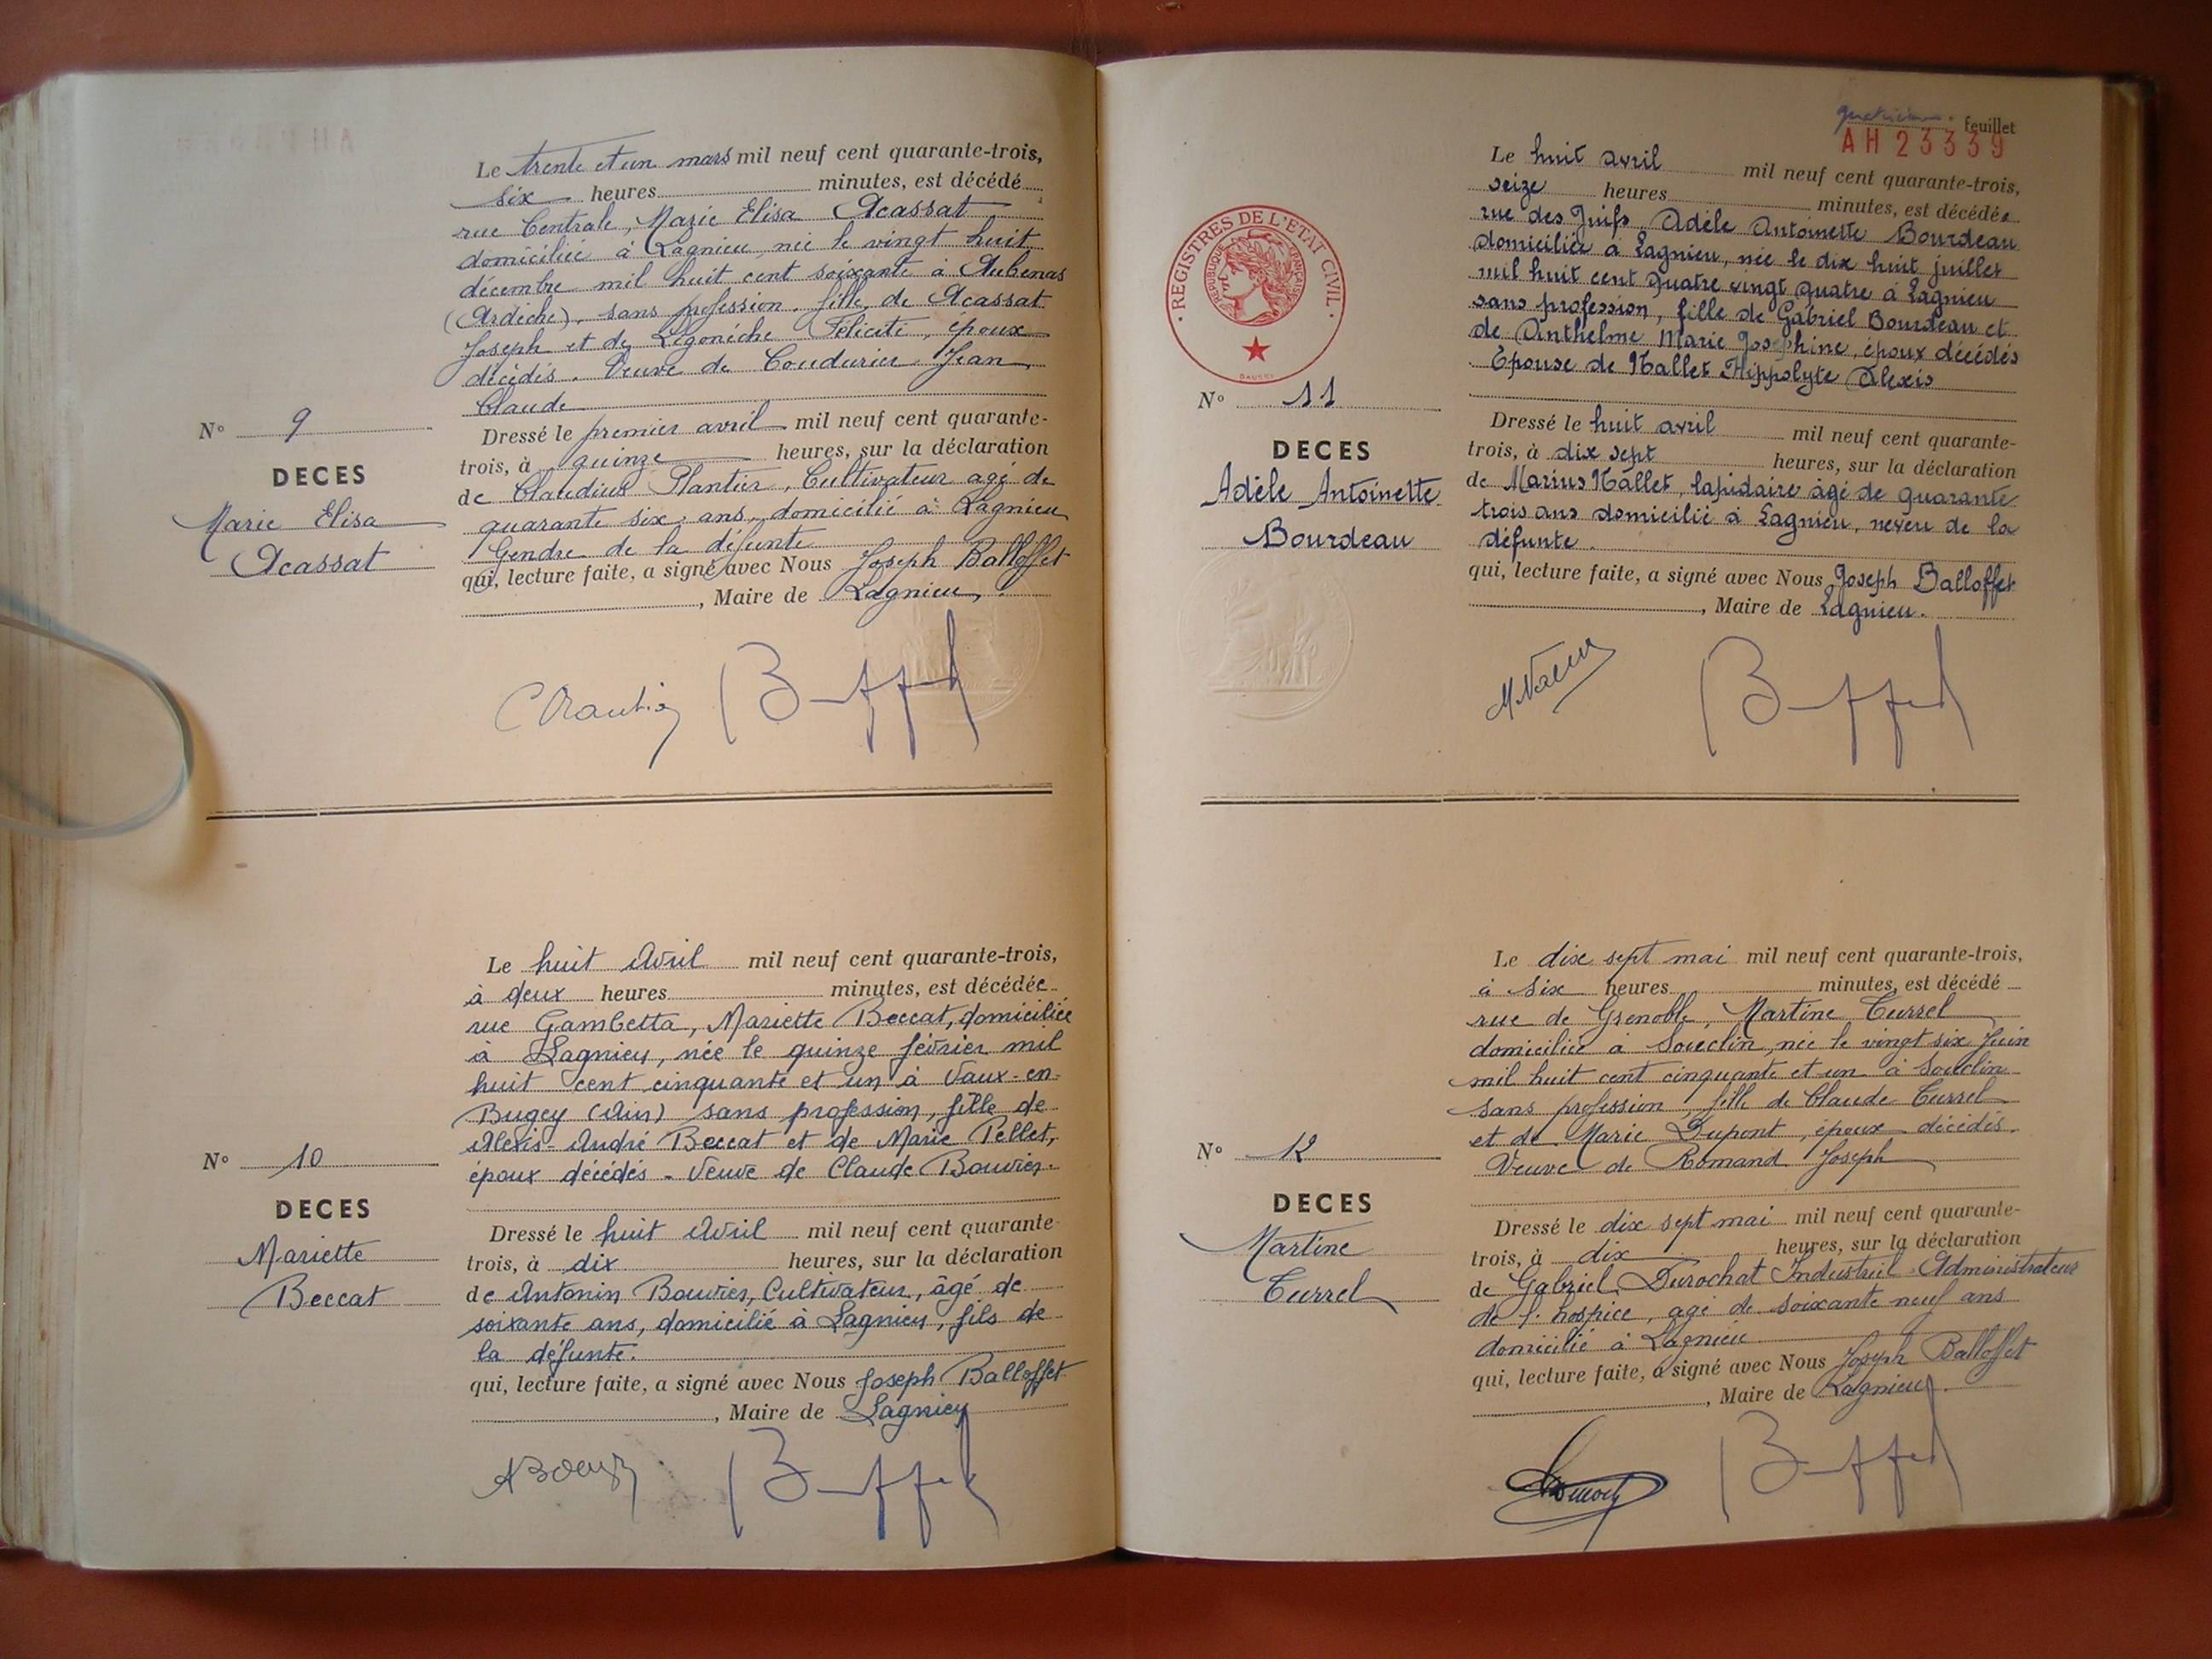 Le trente et un mars mil neuf cent quarante-trois,
six heures minutes, est décédé
rue Centrale, Marie Elisa Acassat
domiciliée à Lagnieu, née le vingt huit
décembre mil huit cent soixante à Aubenas
(Ardèche), sans profession, fille de Acassat
Joseph et de Légonèche Félicité, époux
décédés. Veuve de Coudurier Jean
Claude
N° 9
DECES
Marie Elisa
Acassat
Dressé le premier avril mil neuf cent quarante-
trois, à quinze heures, sur la déclaration
de Claudius Plantier, Cultivateur agé de
quarante six ans, domicilié à Lagnieu
Gendre de la défunte
qui, lecture faite, a signé avec Nous Joseph Balloffet
, Maire de Lagnieu.
Le huit Avril mil neuf cent quarante-trois,
à deux heures minutes, est décédée
rue Gambetta, Mariette Beccat, domiciliée
à Lagnieu, née le quinze février mil
huit cent cinquante et un à Vaux-en-
Bugey (Ain) sans profession, fille de
Alexis-André Beccat et de Marie Pellet,
époux décédés - Veuve de Claude Bouvier.
N° 10
DECES
Mariette
Beccat
Dressé le huit Avril mil neuf cent quarante-
trois, à dix heures, sur la déclaration
de Antonin Bouvier, Cultivateur, âgé de
soixante ans, domicilié à Lagnieu, fils de
la défunte.
qui, lecture faite, a signé avec Nous Joseph Balloffet
, Maire de Lagnieu
feuillet
AH 23339
Le huit avril mil neuf cent quarante-trois,
seize heures minutes, est décédée
rue des Juifs, Adèle Antoinette Bourdeau
domiciliée à Lagnieu, née le dix huit juillet
mil huit cent quatre vingt quatre à Lagnieu
sans profession, fille de Gabriel Bourdeau et
de Anthelme Marie Josephine, époux décédés
Epouse de Nallet Hippolyte Alexis
REGISTRES DE L'ETAT CIVIL
REPUBLIQUE FRANÇAISE
N° 11
DECES
Adèle Antoinette
Bourdeau
Dressé le huit avril mil neuf cent quarante-
trois, à dix sept heures, sur la déclaration
de Marius Nallet, lapidaire âgé de quarante
trois ans domicilié à Lagnieu, neveu de la
défunte.
qui, lecture faite, a signé avec Nous Joseph Balloffet
, Maire de Lagnieu.
Le dix sept mai mil neuf cent quarante-trois,
à six heures minutes, est décédé
rue de Grenoble, Martine Turrel
domiciliée à Souclin, née le vingt six Juin
mil huit cent cinquante et un à Souclin
sans profession, fille de Claude Turrel
et de Marie Dupont, époux décédés.
Veuve de Romand Joseph
N° 12
DECES
Martine
Turrel
Dressé le dix sept mai mil neuf cent quarante-
trois, à dix heures, sur la déclaration
de Gabriel Durochat Industriel Administrateur
de l'hospice, agé de soixante neuf ans
domicilié à Lagnieu
qui, lecture faite, a signé avec Nous Joseph Balloffet
, Maire de Lagnieu.